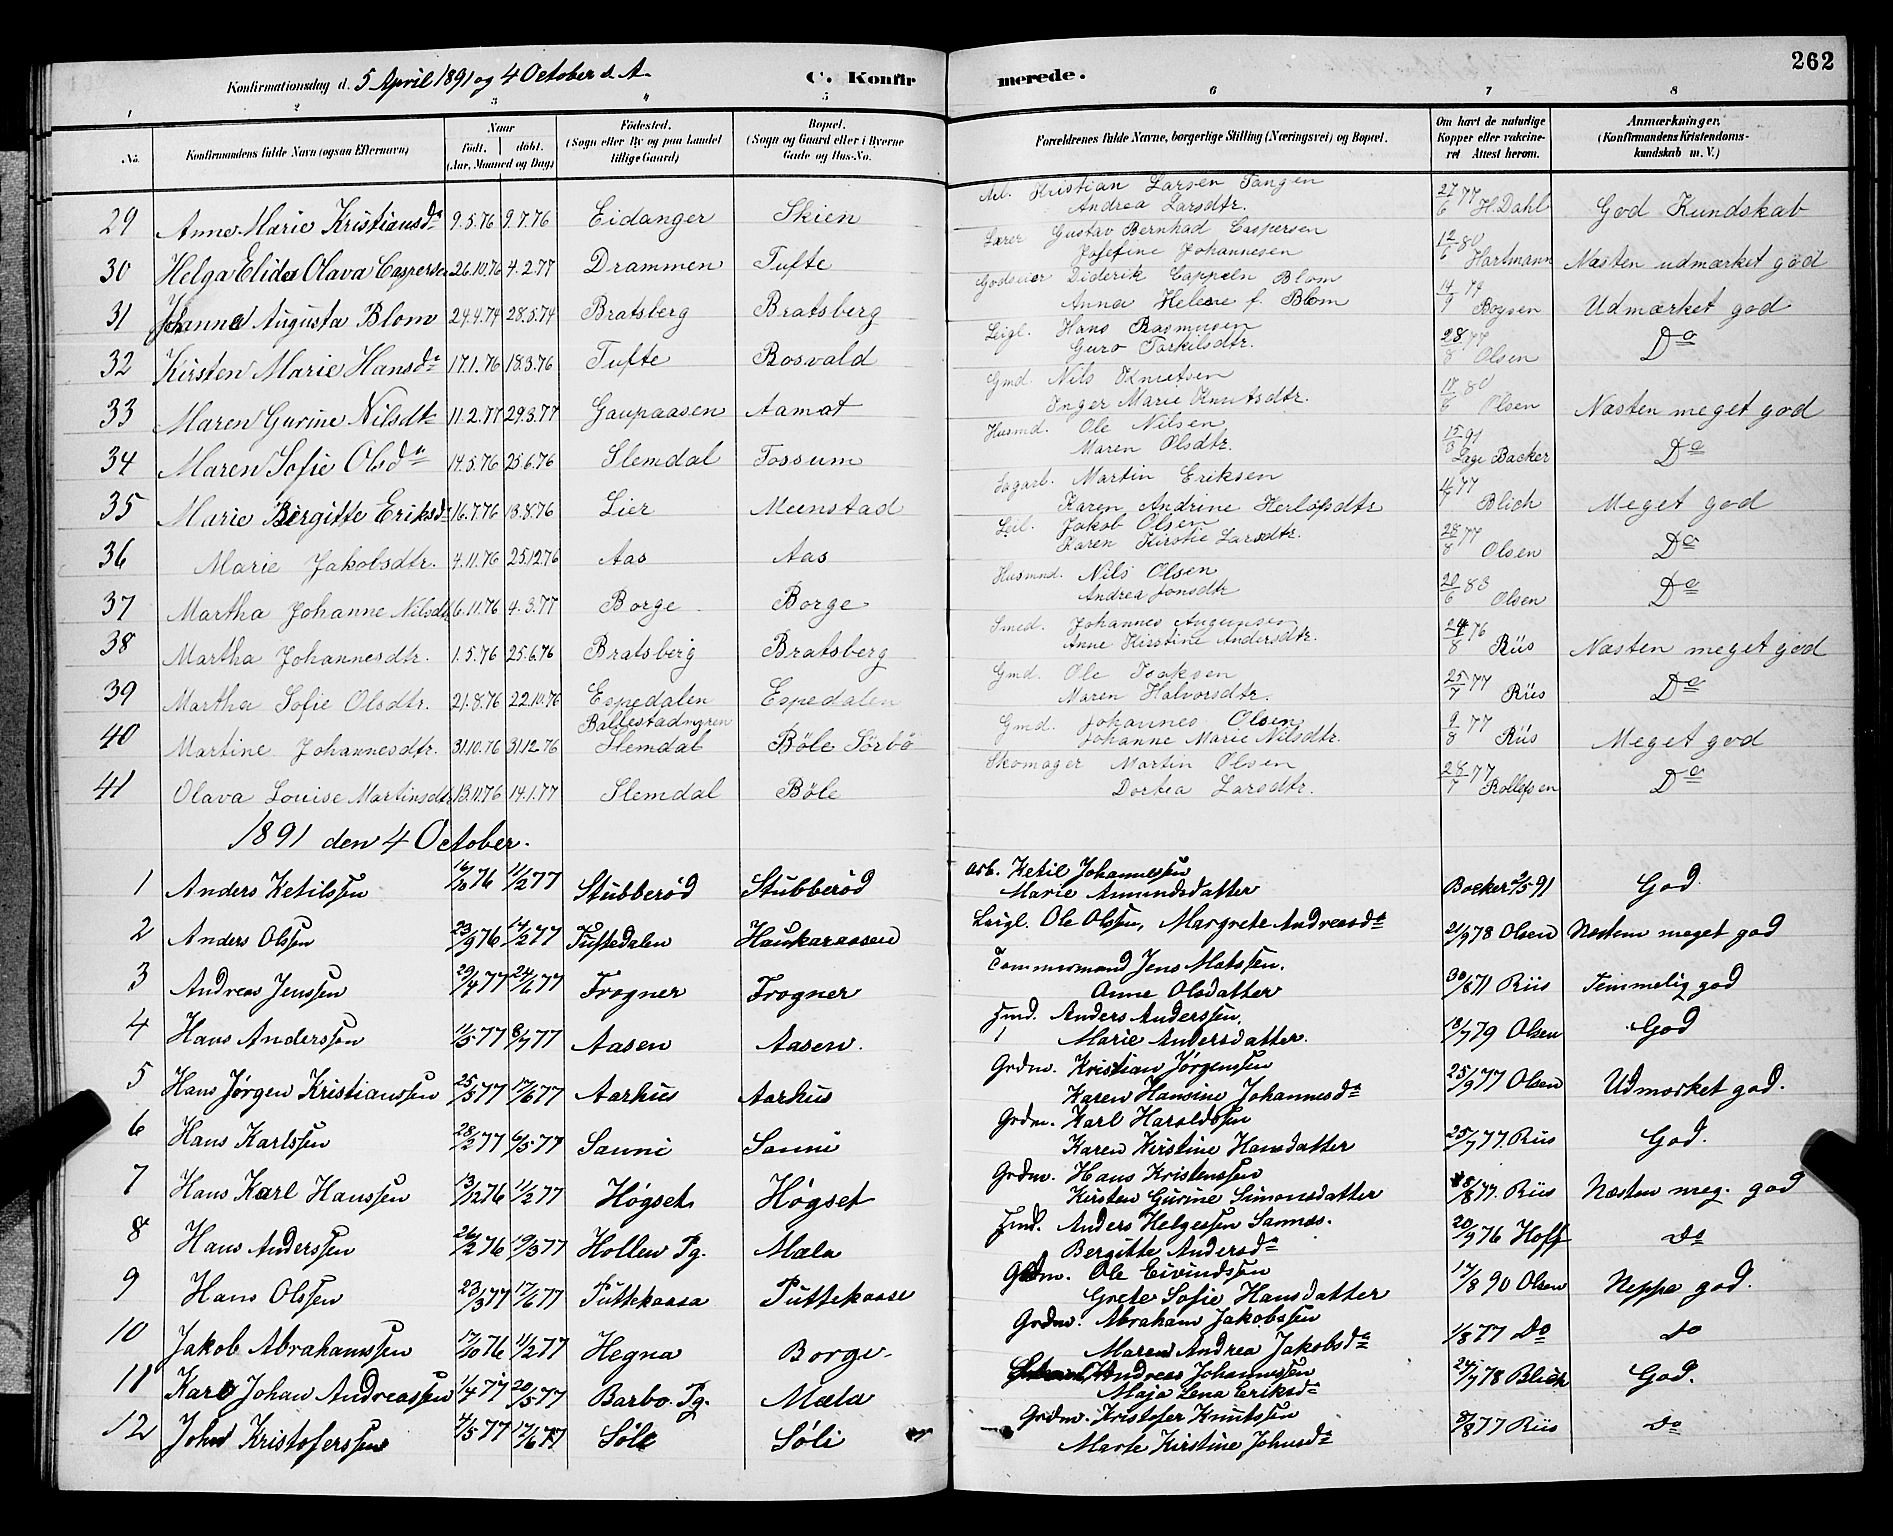 262
Konfirmationsdag d. 5 April 1891 og 4 October d. A.
C. Konfirmerede.
1 2 3 4 5 6 7 8
No. Konfirmandens fulde Navn (ogsaa Efternavn) Naar født. døbt. (Aar, Maaned og Dag) Födested. (Sogn eller By og paa Landet tillige Gaard) Bopæl. (Sogn og Gaard eller i Byerne Gade og Hus-No. Forældrenes fulde Navne, borgerlige Stilling (Næringsvei) og Bopæl. Om havt de naturlige Kopper eller vaccineret Attest herom. Anmærkninger, (Konfirmandens Kristendomskundskab m. V.)
29 Anne Marie Kristiansd. 9.5.76 9.7.76 Eidanger Skien Arb. Kristian Larsen Tangen Andrea Larsdtr. 27/6 77 H. Dahl God Kundskab
30 Helga Elida Olava Caspersen 26.10.76 4.2.77 Drammen Tufte Lærer Gustav Bernhad Caspersen Josefine Johannesen 12/6 80 Hartmann Næsten udmærket god
31 Johanne Augusta Blom 24.4.74 28.5.74 Bratsberg Bratsberg Godseier Diderik Cappeln Blom Anna Helene f. Blom 14/9 74 Boysen Udmærket god
32 Kirsten Marie Hansd. 17.1.76 18.3.76 Tufte Bosvald Leigl. Hans Rasmusen Guro Torkilsdtr. 28/8 77 Olsen Do
33 Maren Gurine Nilsdt. 11.2.77 29.3.77 Gaupaasen Aamot Gmd. Nils Knutsen Inger Marie Knutsdtr. 18/6 80 Olsen Næsten meget god
34 Maren Sofie Olsd. 14.5.76 25.6.76 Slemdal Fossum Husmd. Ole Nilsen Maren Olsdtr. 15/3 91 Læge Backer Do
35 Marie Birgitte Eriksd. 16.7.76 13.8.76 Lier Meenstad Sagarb. Martin Eriksen Karen Andrine Herlofsdtr 77 Blich Meget god
36 Marie Jakobsdtr. 4.11.76 25.12.76 Aas Aas Leil. Jakob Olsen Karen Kirstie Larsdtr. 28/8 77 Olsen Do
37 Martha Johanne Nilsdt. 6.11.76 4.3.77 Borge Borge Husmnd. Nils Olsen Andrea Jonsdtr 20/6 83 Olsen Do
38 Martha Johannesdtr. 1.5.76 25.6.76 Bratsberg Bratsberg Smed. Johannes Augunsen Anne Kirstine Andersdtr. 24/8 76 Riis Næsten meget god
39 Martha Sofie Olsdtr. 21.8.76 22.10.76 Espedalen Espedalen Gmd. Ole Isaksen Maren Halvorsdtr. 25/7 77 Riis Do
40 Martine Johannesdtr. 31.10.76 31.12.76 Ballestadmyren Slemdal Böle Sörbö Gmd. Johannes Olsen Johanne Marie Nilsdtr. 9/8 77 Riis Meget god
41 Olava Louise Martinsdtr. 13.11.76 14.1.77 Slemdal Böle Skomager Martin Olsen Dortea Larsdtr. 28/7 77 Rollefsen Do
1891 den 4 October.
1 Anders Ketilssen 16/10 76 11/2 77 Stubberød Stubberød Arb. Ketil Johannessen Marie Amundsdatter Backer 2/5 91 God
2 Anders Olssen 23/9 76 17/2 77 Tuftedalen Haukaraasen Leigl. Ole Olssen, Margrete Andreasda 21/9 78 Olsen Næsten meget god
3 Andreas Jenssen 29/4 77 24/6 77 Frogner Frogner Tømmermand Jens Matssen. Anne Olsdatter 30/8 71 Riis Temmelig god
4 Hans Anderssen 1/5 77 8/7 77 Aasen Aasen. Hmd. Anders Anderssen. Marie Andersdatter. 18/7 79 Olsen God
5 Hans Jørgen Kristianssen 25/5 77 17/6 77 Aarhus Aarhus Grdm. Kristian Jørgensen Karen Hansine Johannesda 25/9 77 Olsen Udmærket god.
6 Hans Karlssen 28/2 77 6/5 77 Sanni Sanni Grdm. Karl Haraldssen Karen Kirstine Hansdatter 25/7 77. Riis God.
7 Hans Karl Hanssen 13/12 76 11/2 77 Høgset Høgset Grdm. Hans Kristenssen Kirsten Gurine Simonsdatter /8 77. Riis Næsten meg. god
8 Hans Anderssen 26/12 76 19/3 77 Hollen Pg. Mæla Hmd. Anders Helgessen Sannes. Bergitte Andersda 20/9 76 Hoff Do
9 Hans Olssen 23/3 77 17/6 77 Puttekaasa Puttekaase Grdm. Ole Eivindssen Grete Sofie Hansdatter 17/8 90 Olsen Neppe god.
10 Jakob Abrahamssen 17/10 76 11/2 77 Hegna Borge Grdm. Abraham Jakobssen Maren Andrea Jakobsda 1/8 77 Do Do
11 Karl Johan Andreassen 1/4 77 20/5 77 Barbo Pg. Mæla Andreas Johannessen Maja Lena Eriksda 24/7 78 Blich God.
12 John Kristoferssen 4/5 77 17/6 77 Søli Søli Grdm. Kristofer Knutssen Marte Kirstine Johnsda 8/8 77 Riis Do